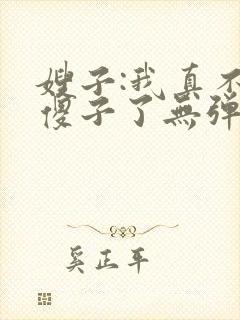 嫂子:我真不
傻子了無弹
奚正平